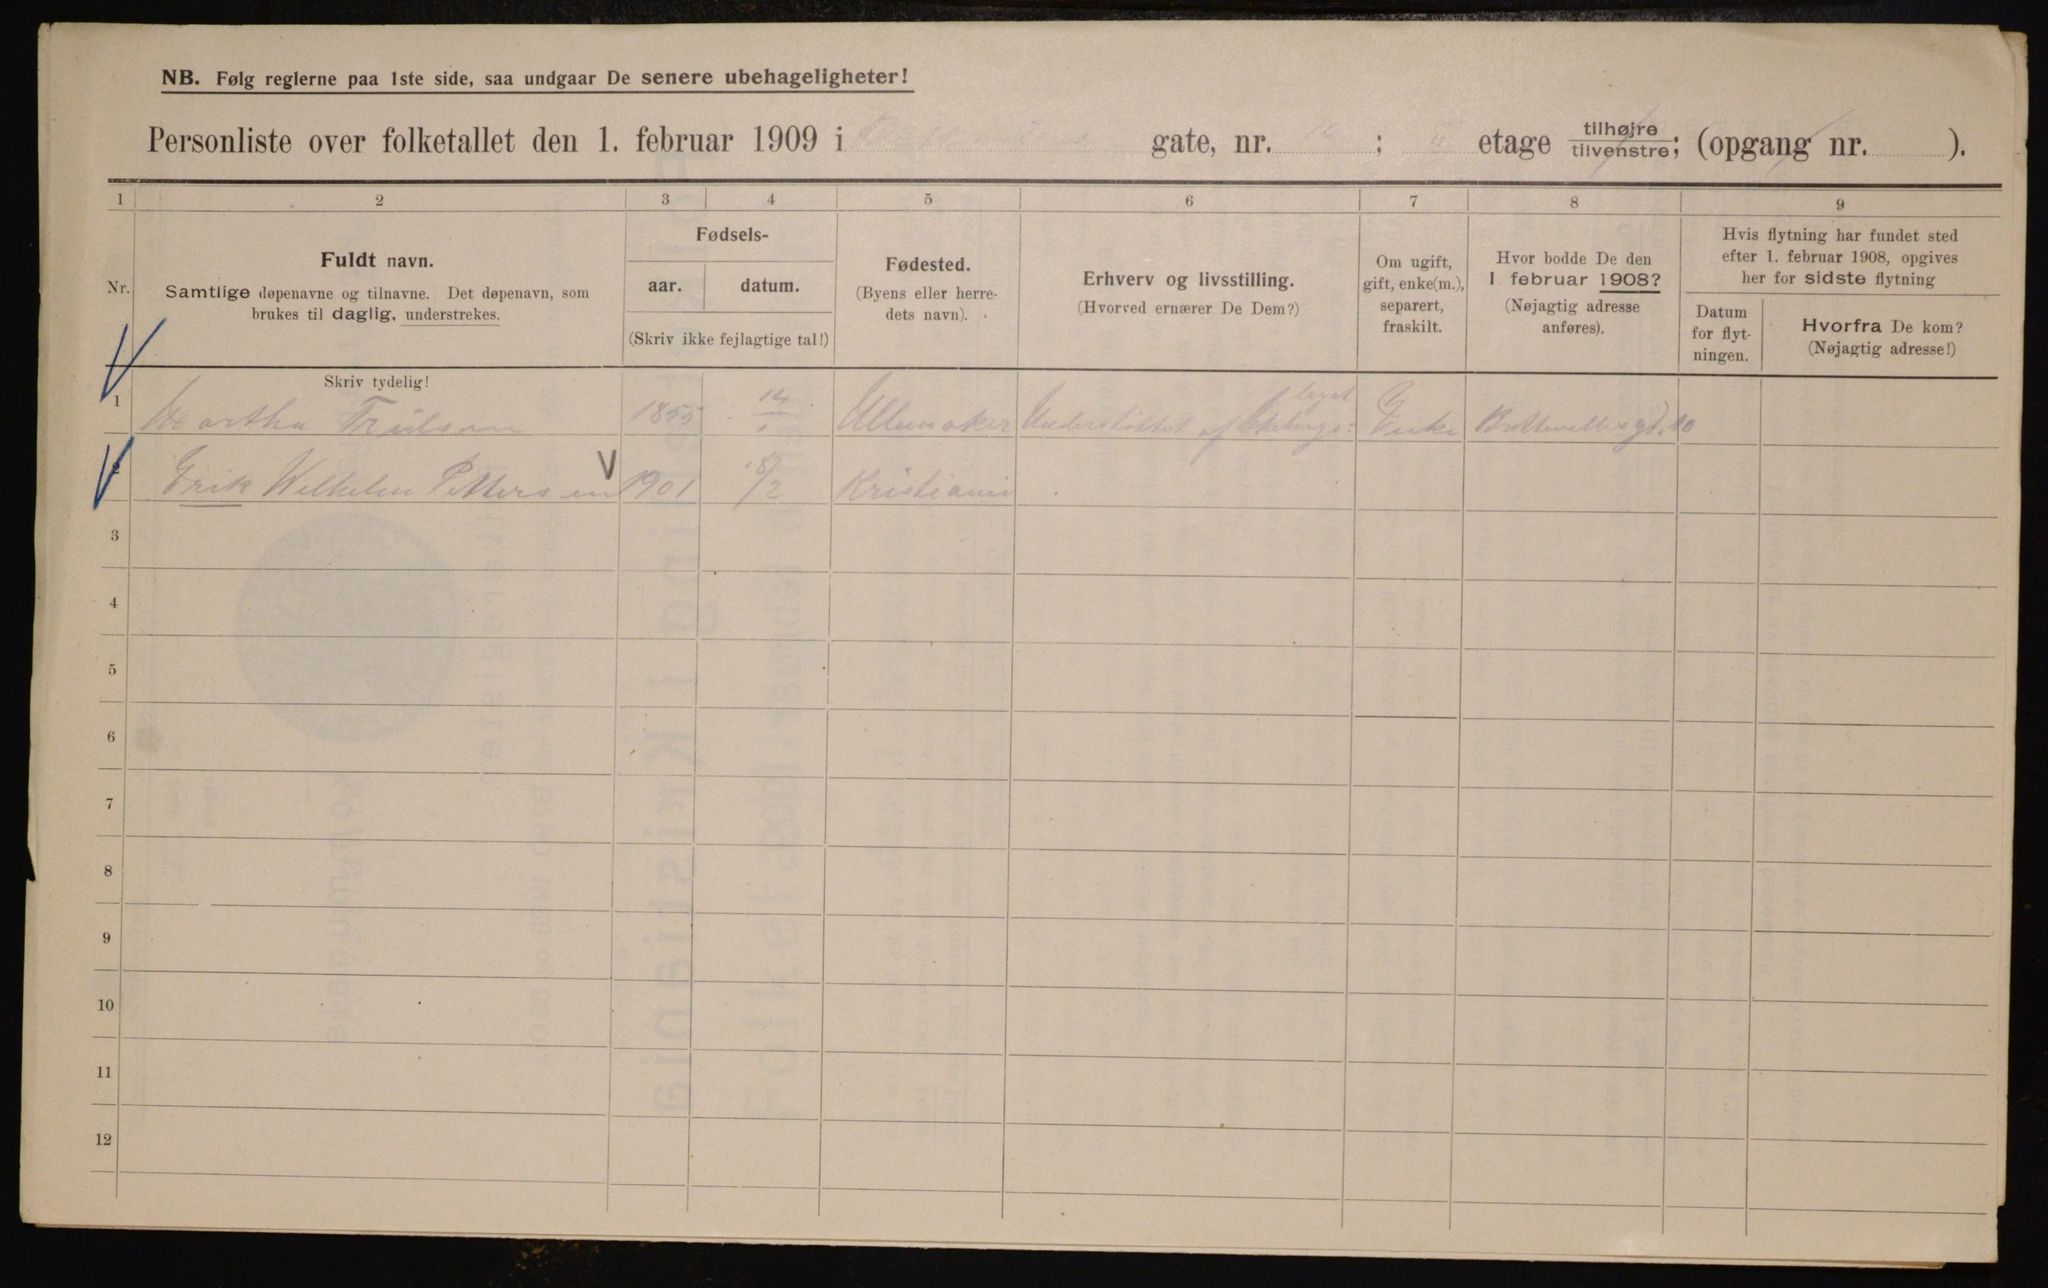 NB. Følg reglerne paa 1ste side, saa undgaar De senere ubehageligheter!
Personliste over folketallet den 1. februar 1909 i gate, nr. 10 ; II etage tilhøjre/tilvenstre; (opgang nr. ).
1 2 3 4 5 6 7 8 9
Nr.
Fuldt navn.
Samtlige døpenavne og tilnavne. Det døpenavn, som
brukes til daglig, understrekes.
Skriv tydelig!
Fødsels-
aar. datum.
(Skriv ikke fejlagtige tal!)
Fødested.
(Byens eller herre-
dets navn).
Erhverv og livsstilling.
(Hvorved ernærer De Dem?)
Om ugift,
gift, enke(m.),
separert,
fraskilt.
Hvor bodde De den
1. februar 1908?
(Nøjagtig adresse
anføres).
Hvis flytning har fundet sted
efter 1. februar 1908, opgives
her for sidste flytning
Datum
for flyt-
ningen.
Hvorfra De kom?
(Nøjagtig adresse!)
1 Martha Trulsen 1855 14 Ullensaker Understøttet af Enke 10
Erik Wilhelm Pettersen 1901 8/2 Kristiania
3
4
5
6
7
8
9
10
11
12